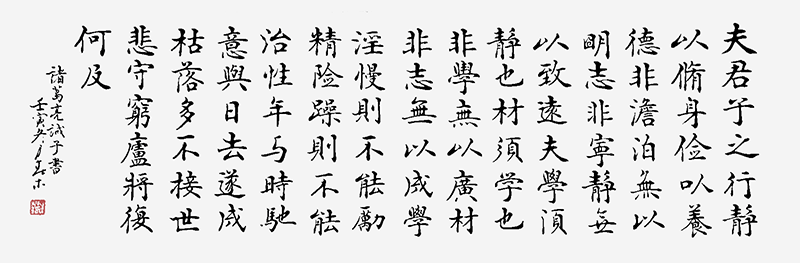 夫君子之行静
以脩身俭以養
德非澹泊無以
明志非寧静無
以致遠夫學須
静也材須学也
非學無以廣材
非志無以成學
淫慢則不能勵
精险躁則不能
治性年与時馳
意與日去遂成
枯落多不接世
悲守窮廬將復
何及
諸葛亮誡子書
壬寅年月木